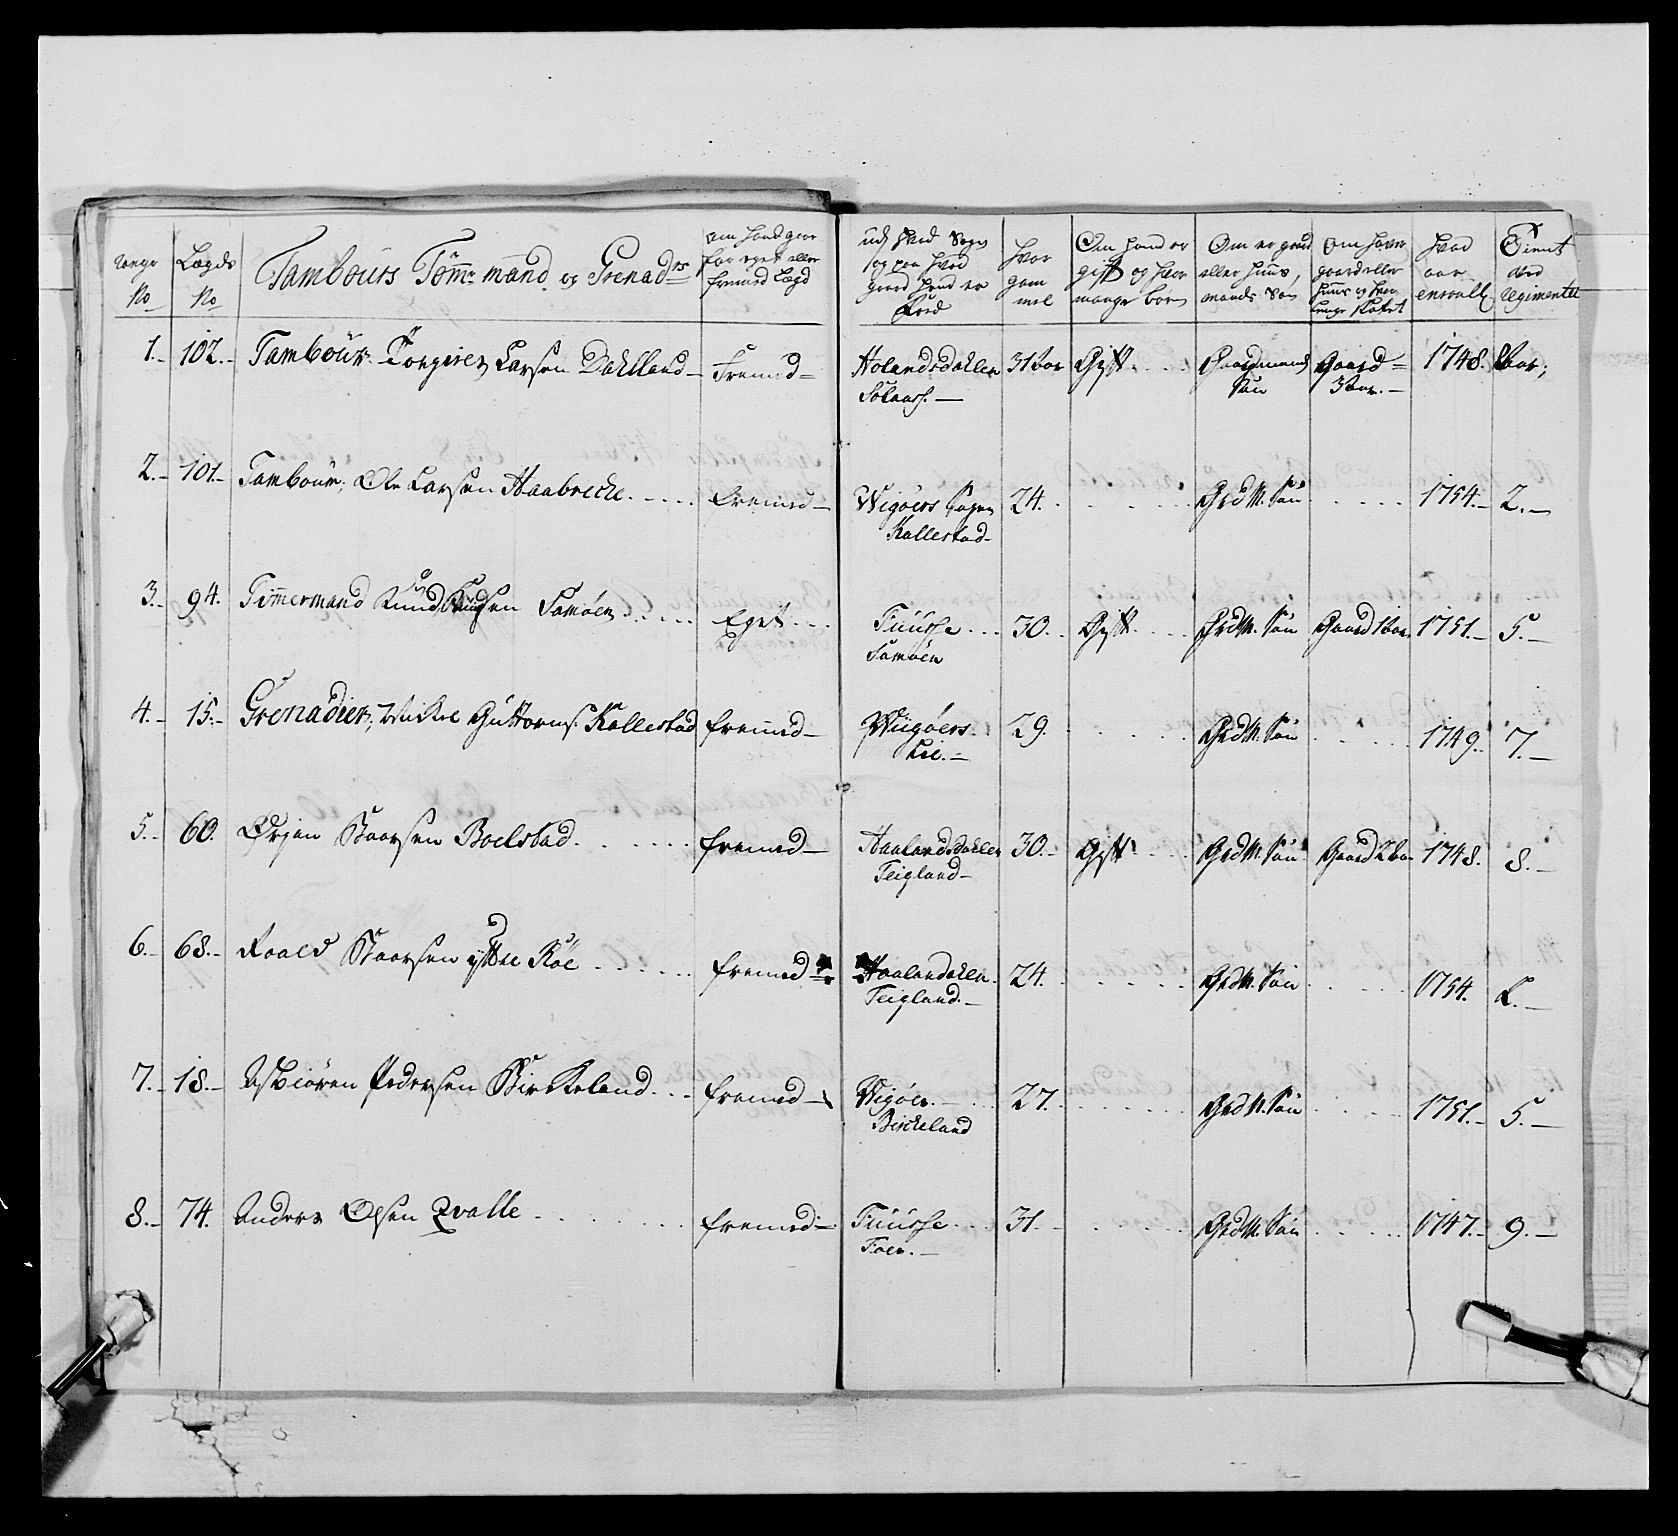 Range No | Lægds No | Tambours Tømmermand og Grenad:rs | om hand giør for eget eller fremed Lægd | udj hvad Sogn og paa hvad gaard hand er fød | hvor gammel | Om hand er gift og hvor mange børn | Om er gaard eller huus mands Søn | Om haver gaard eller huus og hvor lenge | hvad aar enroull | Tient ved Regimentet
1.- | 102.- | Tambour. Torgier Larsen Dahlland | Fremd | Holandsdahlen | 31 aar | Gift | Gaardmands Søn | Gaard 3 aar.- | 1748. | aar;
2.- | 101.- | Tambour, Ole Larsen Aabrecke | Fremed | Wigøers Sogn Kallestad | 24. | Grd M. Søn | 1754.- | 2.-
3.- | 94. | Timmermand Knud Knudsen Samøen | Eget | Fuusse Samøen | 30. | Gift | Grd M. Søn | Gaard 1 aar | 1751.- | 5.-
4.- | 15.- | Grenadier, Guttorms: Kallestad | fremed | Wigøers Lie.- | 29. | Grd M. Søn | 1749.- | 7.-
5.- | 60. | Ørjan Baarsen Boelstad | fremed | Haalandsdahlen Teigland | 30.- | Gift | Grd M. Søn | Gaard 2 aar | 1748. | 8.-
6.- | 68.- | Roald Baarsen yttre Røe | fremed | Haalandahlen Teigland.- | 24. | Grd M. Søn | 1754. | 2.-
7.- | 18.- | Asbiøren Pedersen Birkeland | fremed | Wigøer Birckeland | 27. | Grd M. Søn | 1751.- | 5.-
8.- | 74. | Anders Olsen Qvalle | fremed | Fuusse | 31. | Grd M. Søn | 1747.- | 9.-